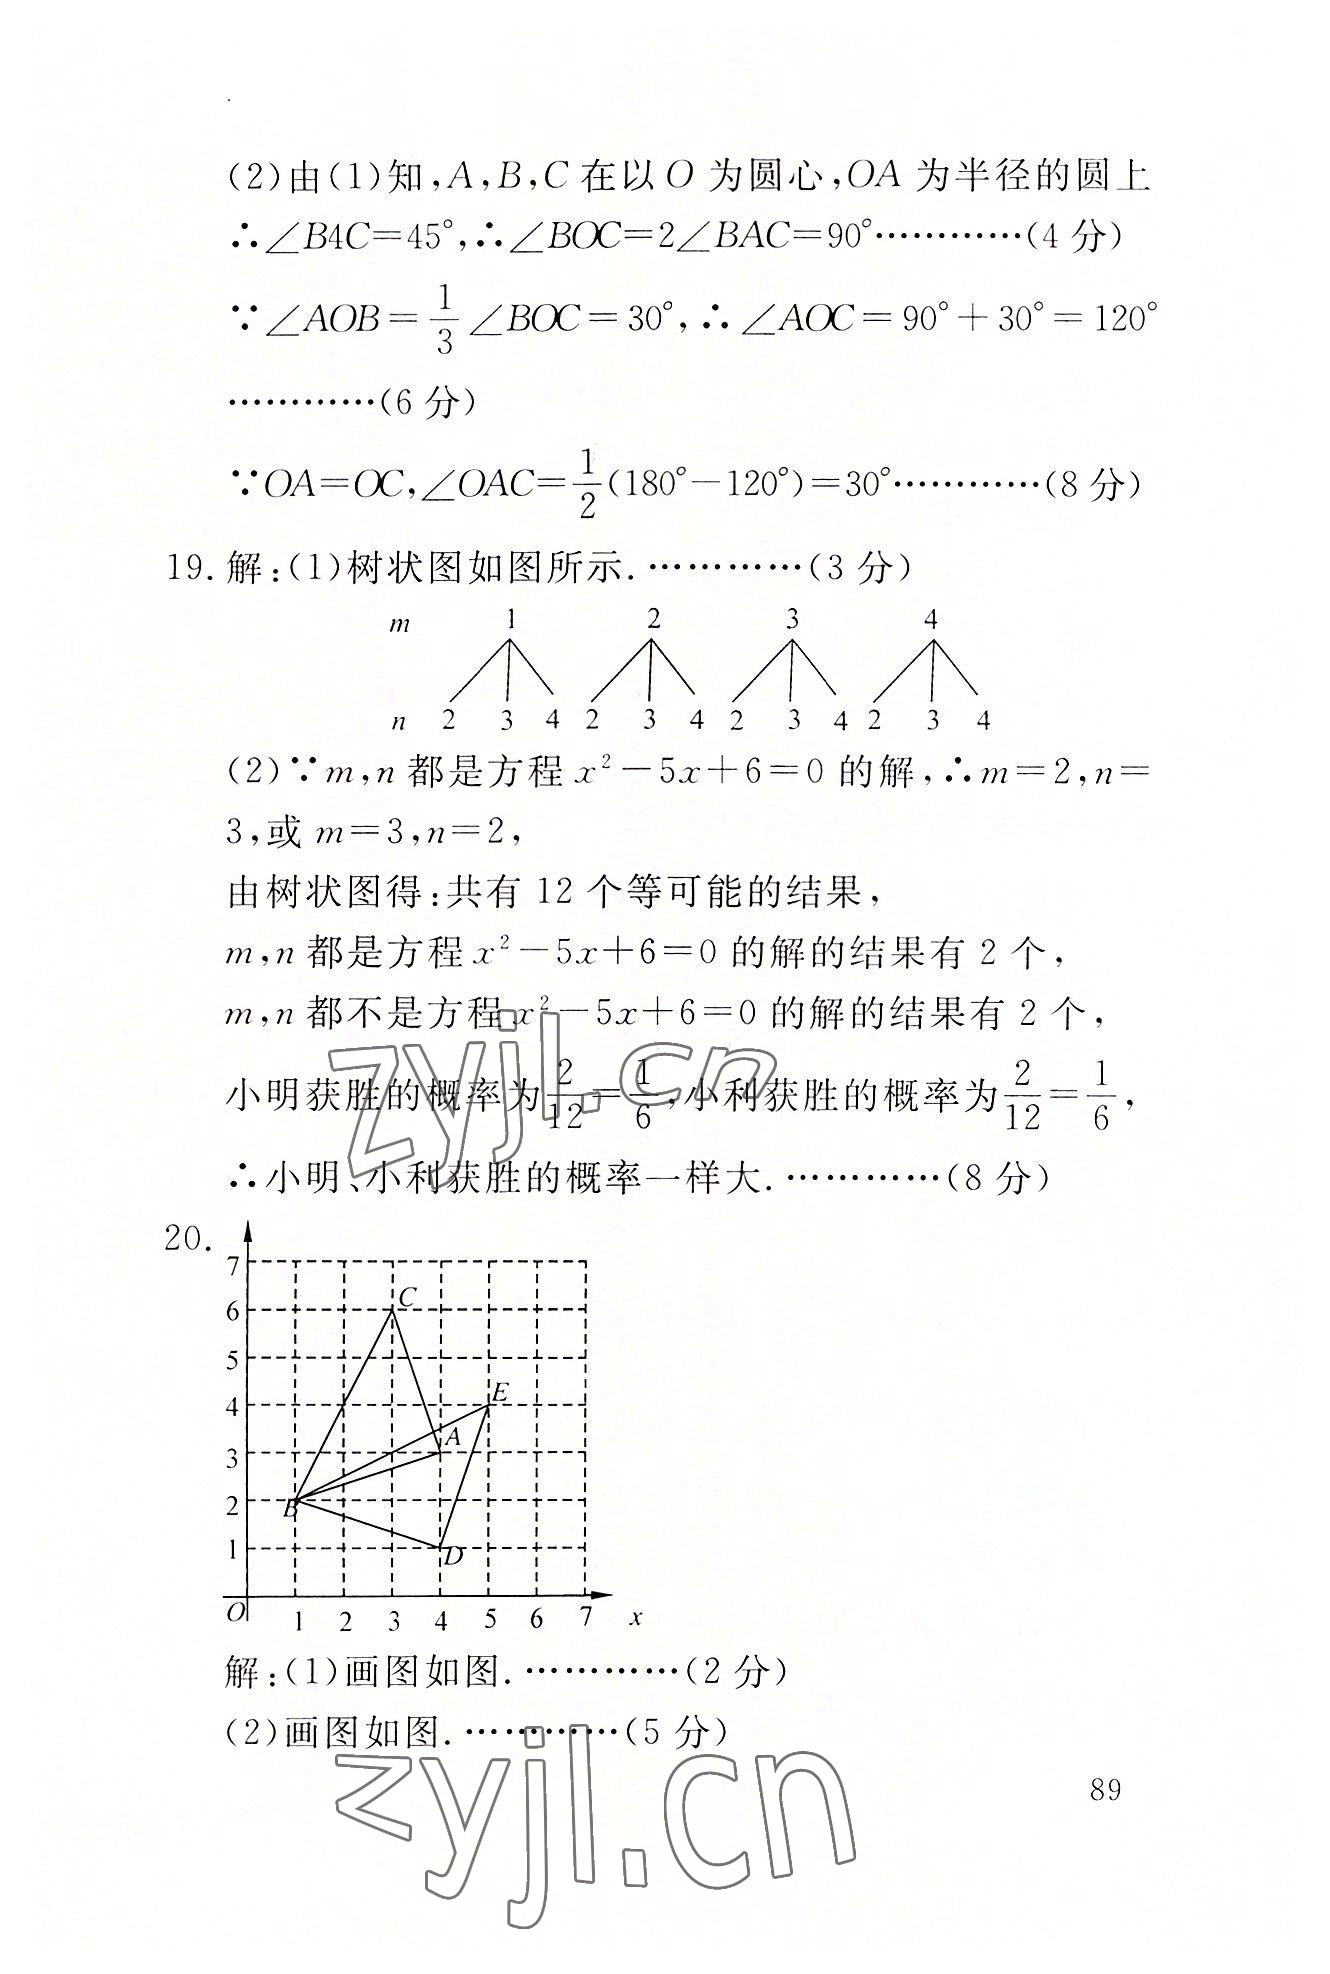 (2)由(1)知,A,B,C在以O为圆心,OA为半径的圆上
∴∠B4C=45°,∴∠BOC=2∠BAC=90°…………(4分)
∵∠AOB=1/3∠BOC=30°,∴∠AOC=90°+30°=120°
…………(6分)
∵OA=OC,∠OAC=1/2(180°-120°)=30°…………(8分)
19.解:(1)树状图如图所示.…………(3分)
m 1 2 3 4
n 2 3 4 2 3 4 2 3 4 2 3 4
(2)∵m,n都是方程x²-5x+6=0的解,∴m=2,n=
3,或m=3,n=2,
由树状图得:共有12个等可能的结果,
m,n都是方程x²-5x+6=0的解的结果有2个,
m,n都不是方程x²-5x+6=0的解的结果有2个,
小明获胜的概率为2/12=1/6,小利获胜的概率为2/12=1/6,
∴小明、小利获胜的概率一样大.…………(8分)
20.
7
6 C
5
4 E
3 A
2 B
1 D
O 1 2 3 4 5 6 7 x
解:(1)画图如图.…………(2分)
(2)画图如图.…………(5分)
89
zyjl.cn
zyjl.cn